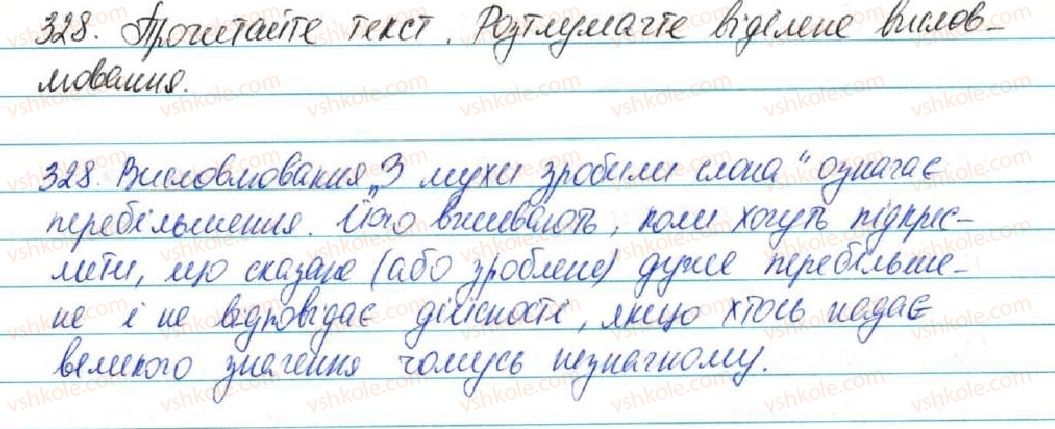 328. Прочитайте текст. Розтлумачте виділене вислов-
лювання.
328. Висловлювання „З мухи зробили слона“ означає
перебільшення. Його вживають, коли хочуть підкрес-
лити, що сказане (або зроблене) дуже перебільше-
не і не відповідає дійсності, якщо хтось надає
великого значення чомусь незначному.